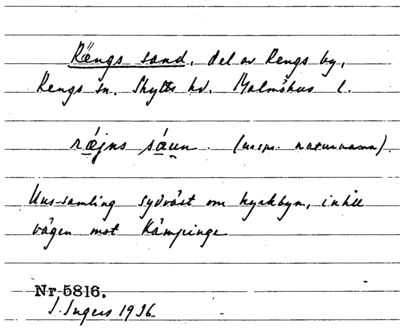 Rängs sand, del av Rengs by,
Rengs sn. Skytts hd. Malmöhus l.
rǽ̨jns sáu̯n. (urspr. naturnamn).
Hus-samling sydväst om kyrkbyn, intill
vägen mot Kämpinge
Nr 5816.
I. Ingers 1936.